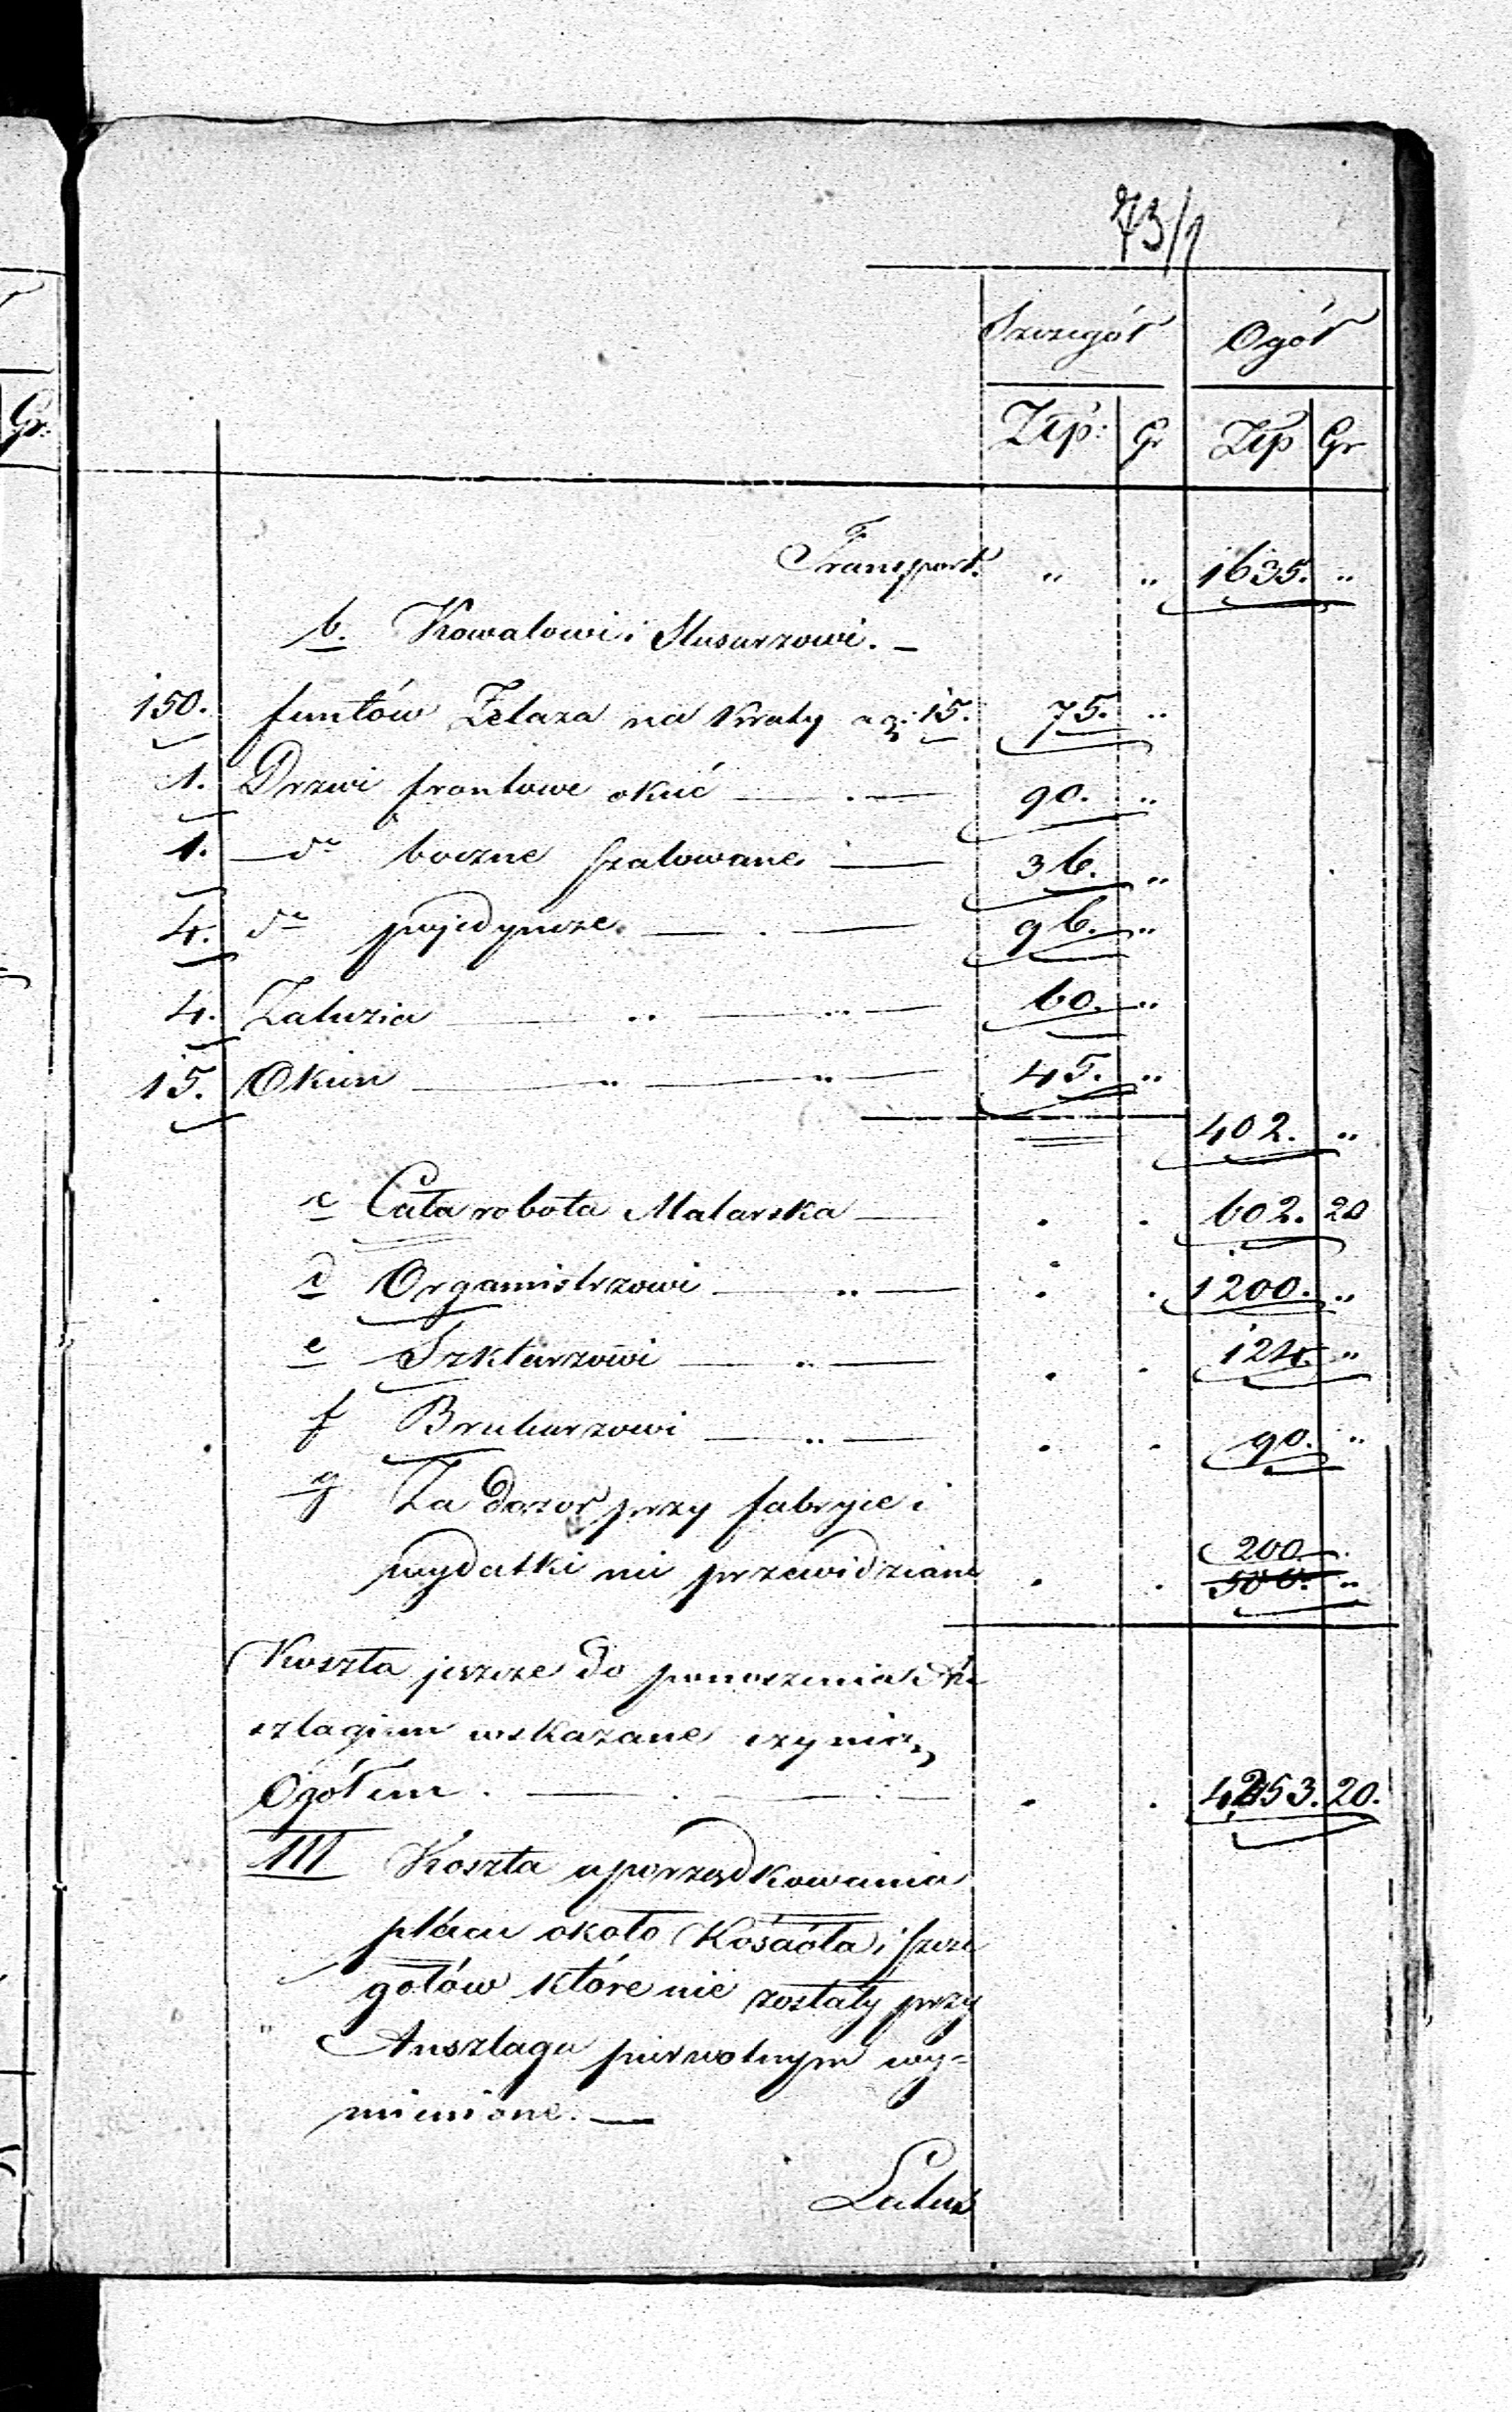 73/1
Szczegół Ogół
Gr: Złp: Gr Złp Gr
Transport. „ „ 1635. „
b. Kowalowi i Slusarzowi. –
150. funtów Żelaza na Kraty a g: 15. 75. „
1. Drzwi frontowe okuć — . — 90. „
1. — do boczne szalowane — 36. „
4. do pojedyncze. — . — 96. „
4. Zaluzia — „ — „ — 60. „
15. Okien — „ — „ — 45. „
402. „
c Cała robota Malarska — . . 602. 20
d Organistrzowi — „ — . . 1200. „
e Szklarzowi — „ — . . 124. „
f Brukarzowi — „ — . . 90. „
g Za dozor przy fabryce i
200.
wydatki nie przewidziane . . 500. „
Koszta jeszcze do ponoszenia An
szlagiem wskazane czynią
Ogółem . — . — . — . . 4253. 20.
III Koszta uporządkowania
placu około Kościoła i szcze
gołów które nie zostały przy
" Anszlagu pierwotnym wy=
mienione. —
Latus